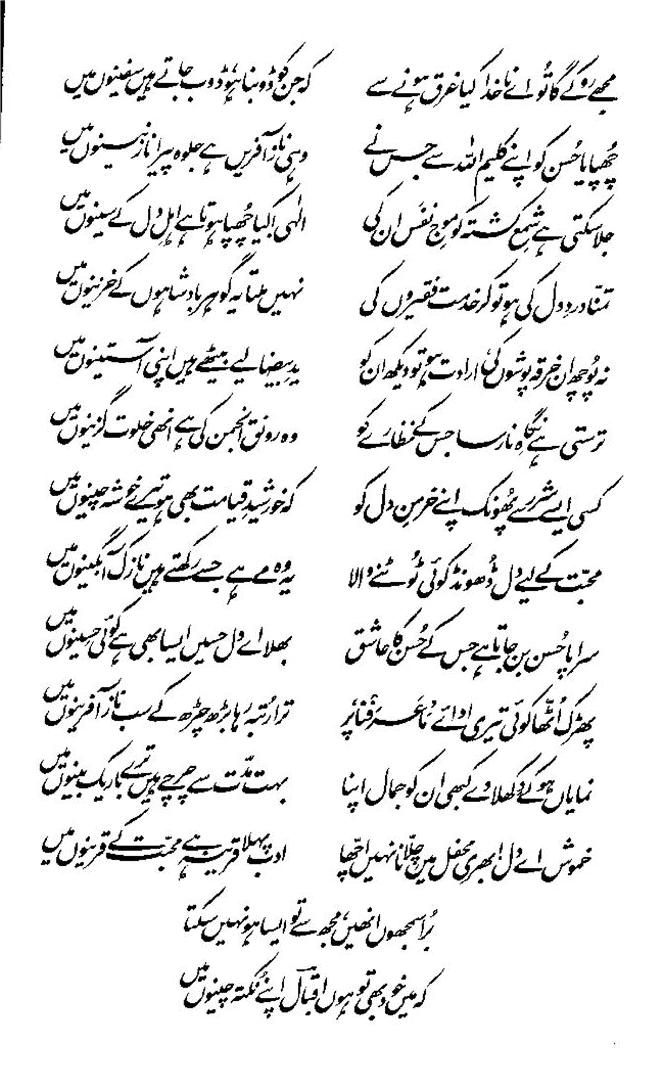 مجھے روکے گا تُو اے ناخدا کیا غرق ہونے سے کہ جن کو ڈوبنا ہو ڈوب جاتے ہیں سفینوں میں
چھُپایا حُسن کو اپنے کلیم اللہ سے جس نے وہی ناز آفریں ہے جلوہ پیرا نازنینوں میں
جلا سکتی ہے شمعِ کشتہ کو موجِ نفَس ان کی الٰہی! کیا چھُپا ہوتا ہے اہلِ دل کے سینوں میں
تمنّا دردِ دل کی ہو تو کر خدمت فقیروں کی نہیں ملتا یہ گوہر بادشاہوں کے خزینوں میں
نہ پُوچھ ان خرقہ پوشوں کی، ارادت ہو تو دیکھ ان کو یدِ بیضا لیے بیٹھے ہیں اپنی آستینوں میں
ترستی ہے نگاہِ نارسا جس کے نظارے کو وہ رونق انجمن کی ہے انھی خلوت گزینوں میں
کسی ایسے شرر سے پھُونک اپنے خرمنِ دل کو کہ خورشیدِ قیامت بھی ہو تیرے خوشہ چینوں میں
محبّت کے لیے دل ڈھونڈ کوئی ٹُوٹنے والا یہ وہ مے ہے جسے رکھتے ہیں نازک آبگینوں میں
سراپا حُسن بن جاتا ہے جس کے حُسن کا عاشق بھلا اے دل حسیں ایسا بھی ہے کوئی حسینوں میں
پھڑک اُٹھا کوئی تیری ادائے ’مَا عَرَفنا‘ پر ترا رُتبہ رہا بڑھ چڑھ کے سب ناز آفرینوں میں
نمایاں ہو کے دِکھلا دے کبھی ان کو جمال اپنا بہت مدّت سے چرچے ہیں ترے باریک بینوں میں
خموش اے دل! بھری محفل میں چِلّانا نہیں اچھّا ادب پہلا قرینہ ہے محبّت کے قرینوں میں
بُرا سمجھوں انھیں، مجھ سے تو ایسا ہو نہیں سکتا
کہ میں خود بھی تو ہوں اقبالؔ اپنے نُکتہ چینوں میں